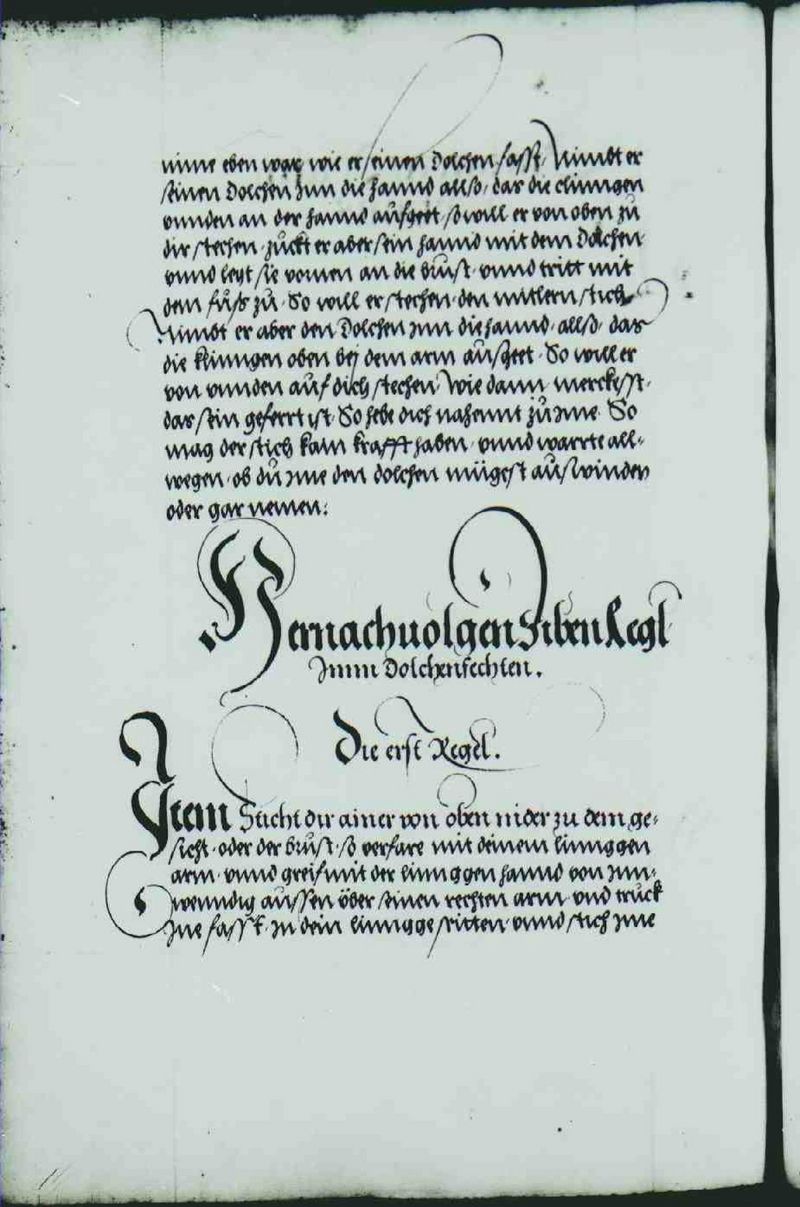 nime eben war wie er seinen dolchen fasst, Nimbt er
seinen dolchen inn die hannd allso, das die clinngen
vnnden an der hannd aufgeet, so will er von oben zu
dir stechen, zuckt er aber sein hannd mit dem dolchen,
vnnd legt sie vornen an die brust, vnnd tritt mit
dem fuss zu, So will er stechen, den mitlern stich
Nimbt er aber den Dolchen inn die hannd, allso, das
die klinngen oben bej dem arm aussgeet, So will er
von vnnden auf dich stechen, Wie dann merckesst,
das sein geferrt ist, So hebe dich nahennt zu ime, So
mag der stich kain krafft haben, vnnd warrte all=
wegen, ob du ime den dolchen mügest ausswinden
oder gar nemen.
Hernachuolgen Siben Regl
Imm Dolchenfechten.
Die erst Regel.
Item Sticht dir ainer von oben nider zu dem ge=
sicht, oder der brust, so verfare mit deinem linnggen
arm, vnnd greif mit der linnggen hannd von inn=
wenndig aussen über seinen rechten arm, vnd truck
ine fasst, in dein linngge seitten, vnnd stich ime